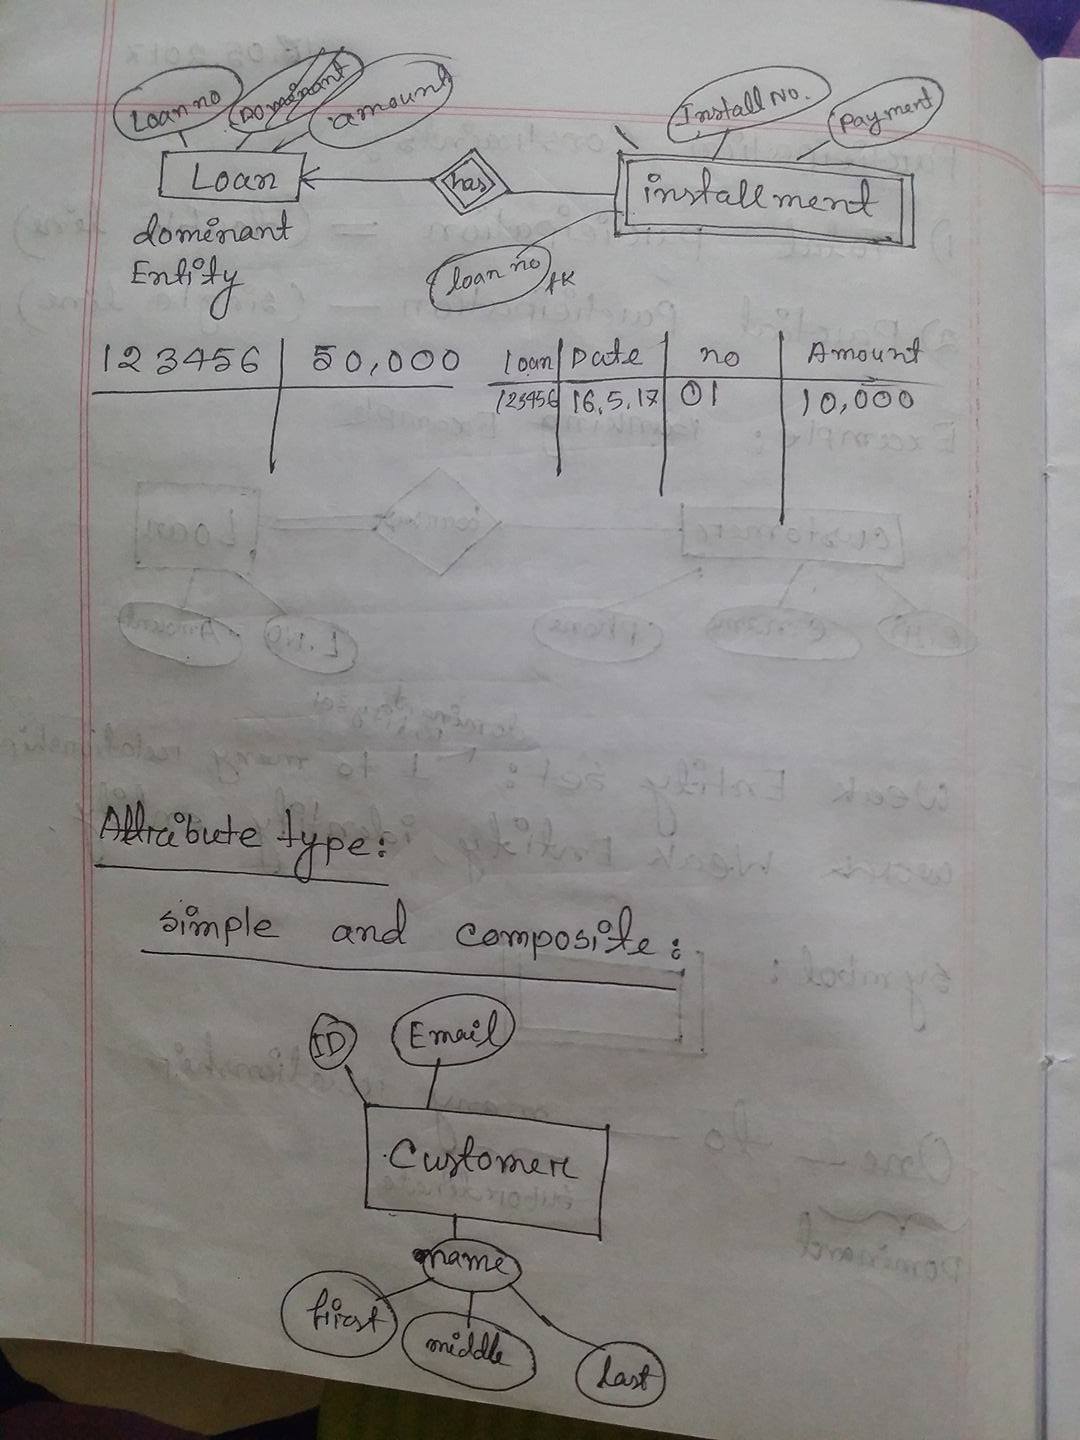 Loan no Dominant amount Install No. Payment
Loan has installment
dominant
Entity
loan no fk
123456 50,000 loan Date no Amount
123456 16.5.17 01 10,000
Attribute type:
simple and composite:
ID Email
Customer
name
first middle last